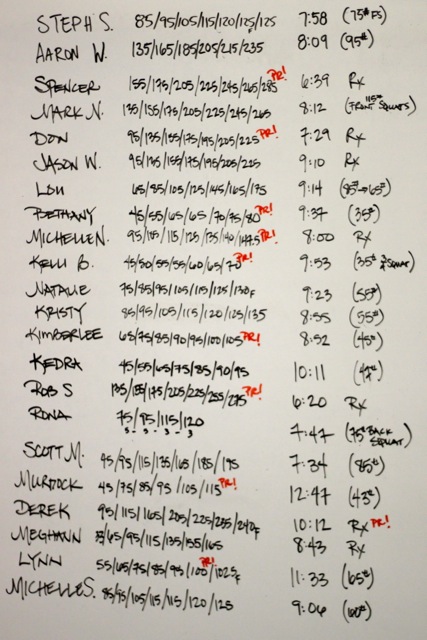 STEPH S. 85/95/105/115/120/125/125 7:58 (75# FS)
AARON W. 135/165/185/205/215/235 8:09 (95#)
SPENCER 155/175/205/225/245/265/285 PR! 6:39 Rx
MARK N. 135/155/175/205/225/245/265 8:12 (115# FRONT SQUATS)
DON 95/135/155/175/195/205/225 PR! 7:29 Rx
JASON W. 95/135/155/175/195/205/225 9:10 Rx
LOU 65/85/105/125/145/165/175 9:14 (85#→65#)
BETHANY 45/55/65/65/70/75/80 PR! 9:37 (35#)
MICHELLE N. 95/105/115/125/135/140/147.5 PR! 8:00 Rx
KELLI B. 45/50/55/55/60/65/70 PR! 9:53 (35# SQUAT)
NATALIE 75/85/95/105/115/125/130F 9:23 (55#)
KRISTY 85/95/105/115/120/125/135 8:55 (55#)
KIMBERLEE 65/75/85/90/95/100/105 PR! 8:52 (45#)
KEDRA 45/55/65/75/85/90/95 10:11
ROB S 135/155/175/205/225/255/275 PR! 6:20 Rx
RONA 75/95/115/120 7:47 (75# BACK SQUAT)
SCOTT M. 45/95/115/135/165/185/195 7:34 (85#)
MURDOCK 45/75/85/95/105/115 PR! 12:47 (43#)
DEREK 95/115/165/205/225/235/240F 10:12 Rx PR!
MEGHANN 55/65/95/115/135/155/165 8:43 Rx
LYNN 55/65/75/85/95/100/102.5F PR! 11:33 (65#)
MICHELLE S. 85/95/105/115/115/120/125 9:06 (60#)